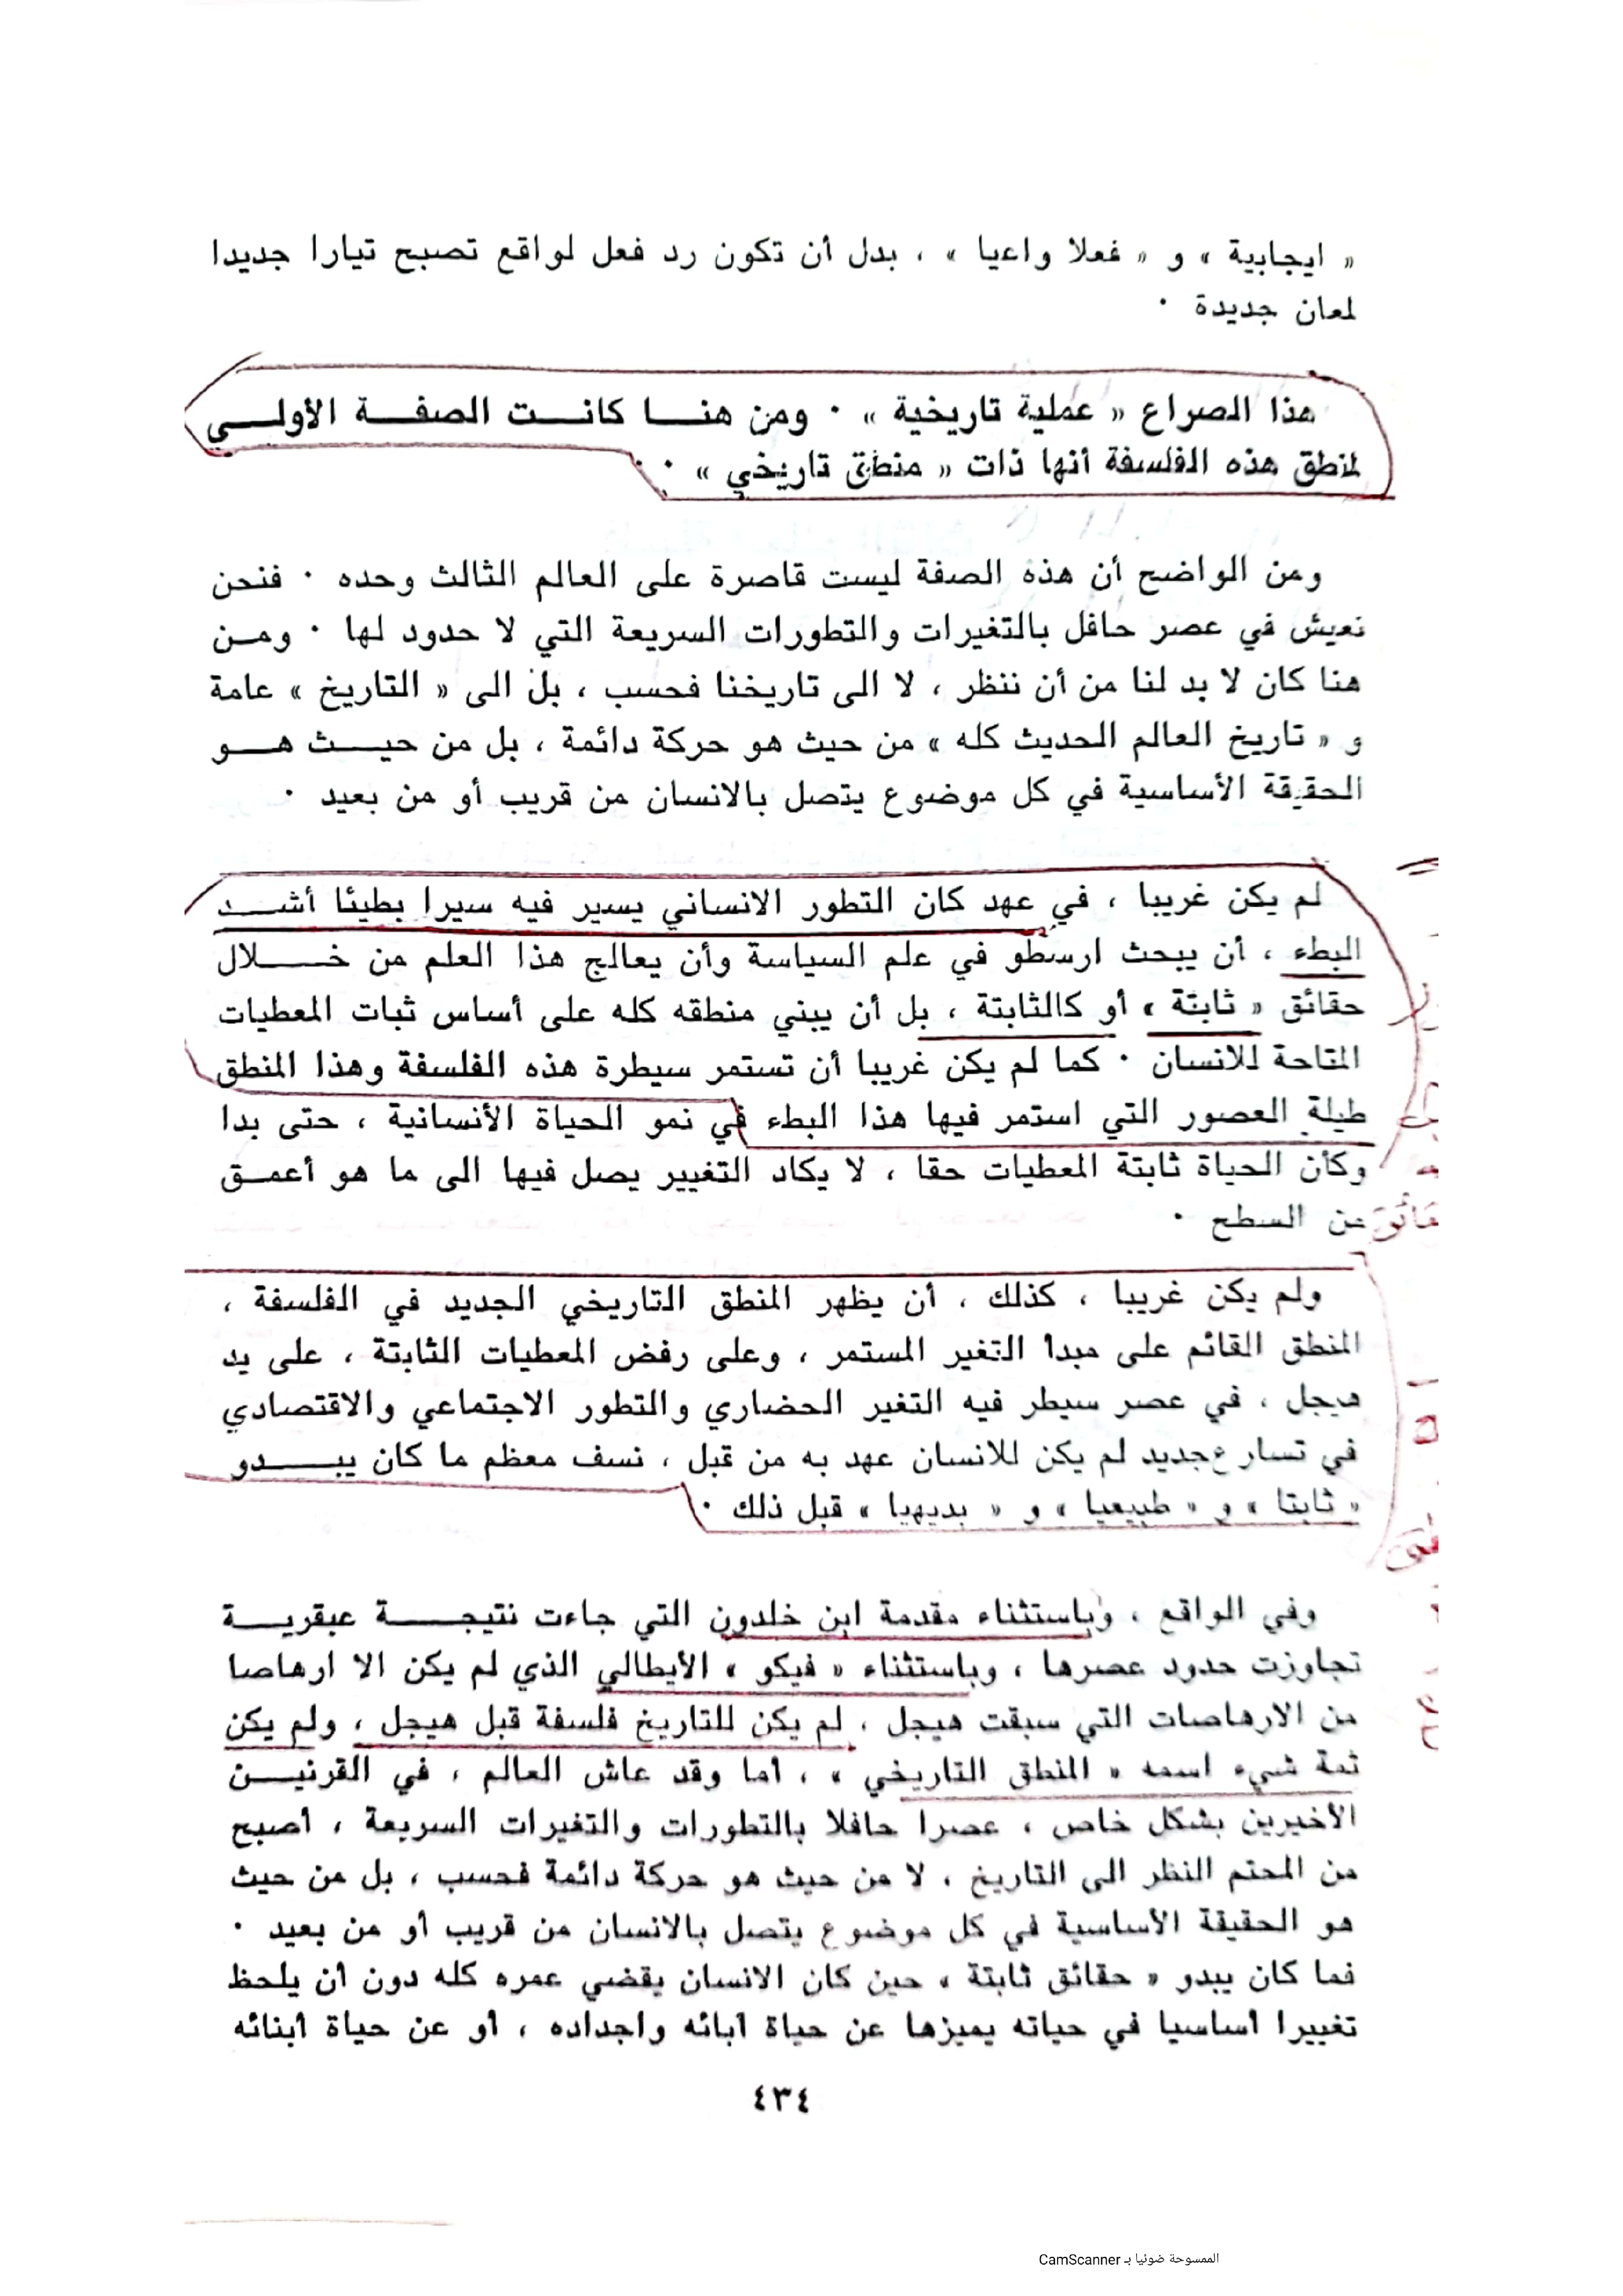 « ايجابية » و « فعلا واعيا » ، بدل أن تكون رد فعل لواقع تصبح تيارا جديدا
لمعان جديدة ٠
هذا الصراع « عملية تاريخية » ٠ ومن هنـــا كانـــت الصفـــة الأولـــي
لمنطق هذه الفلسفة أنها ذات « منطق تاريخي » ٠
ومن الواضح أن هذه الصفة ليست قاصرة على العالم الثالث وحده ٠ فنحن
نعيش في عصر حافل بالتغيرات والتطورات السريعة التي لا حدود لها ٠ ومـن
هنا كان لا بد لنا من أن ننظر ، لا الى تاريخنا فحسب ، بل الى « التاريخ » عامة
و « تاريخ العالم الحديث كله » من حيث هو حركة دائمة ، بل من حيـــث هـــو
الحقيقة الأساسية في كل موضوع يتصل بالانسان من قريب أو من بعيد ٠
لم يكن غريبا ، في عهد كان التطور الانساني يسير فيه سيرا بطيئا أشـــد
البطء ، أن يبحث ارسطو في علم السياسة وأن يعالج هذا العلم من خـــلال
حقائق « ثابتة » أو كالثابتة ، بل أن يبني منطقه كله على أساس ثبات المعطيات
المتاحة للانسان ٠ كما لم يكن غريبا أن تستمر سيطرة هذه الفلسفة وهذا المنطق
طيلة العصور التي استمر فيها هذا البطء في نمو الحياة الأنسانية ، حتى بدا
وكأن الحياة ثابتة المعطيات حقا ، لا يكاد التغيير يصل فيها الى ما هو أعمـق
من السطح ٠
ولم يكن غريبا ، كذلك ، أن يظهر المنطق التاريخي الجديد في الفلسفة ،
المنطق القائم على مبدا التغير المستمر ، وعلى رفض المعطيات الثابتة ، على يد
هيجل ، في عصر سيطر فيه التغير الحضاري والتطور الاجتماعي والاقتصادي
في تسارع جديد لم يكن للانسان عهد به من قبل ، نسف معظم ما كان يبـــدو
« ثابتا » و « طبيعيا » و « بديهيا » قبل ذلك ٠
وفي الواقع ، وباستثناء مقدمة ابن خلدون التي جاءت نتيجـــة عبقريـــة
تجاوزت حدود عصرها ، وباستثناء « فيكو » الأيطالي الذي لم يكن الا ارهاصا
من الارهاصات التي سبقت هيجل ، لم يكن للتاريخ فلسفة قبل هيجل ، ولم يكن
ثمة شيء اسمه « المنطق التاريخي » ، أما وقد عاش العالم ، في القرنيـــن
الأخيرين بشكل خاص ، عصرا حافلا بالتطورات والتغيرات السريعة ، أصبح
من المحتم النظر الى التاريخ ، لا من حيث هو حركة دائمة فحسب ، بل من حيث
هو الحقيقة الأساسية في كل موضوع يتصل بالانسان من قريب أو من بعيد ٠
فما كان يبدو « حقائق ثابتة » حين كان الانسان يقضي عمره كله دون أن يلحظ
تغييرا أساسيا في حياته يميزها عن حياة آبائه واجداده ، أو عن حياة أبنائه
٤٣٤
الممسوحة ضوئيا بـ CamScanner